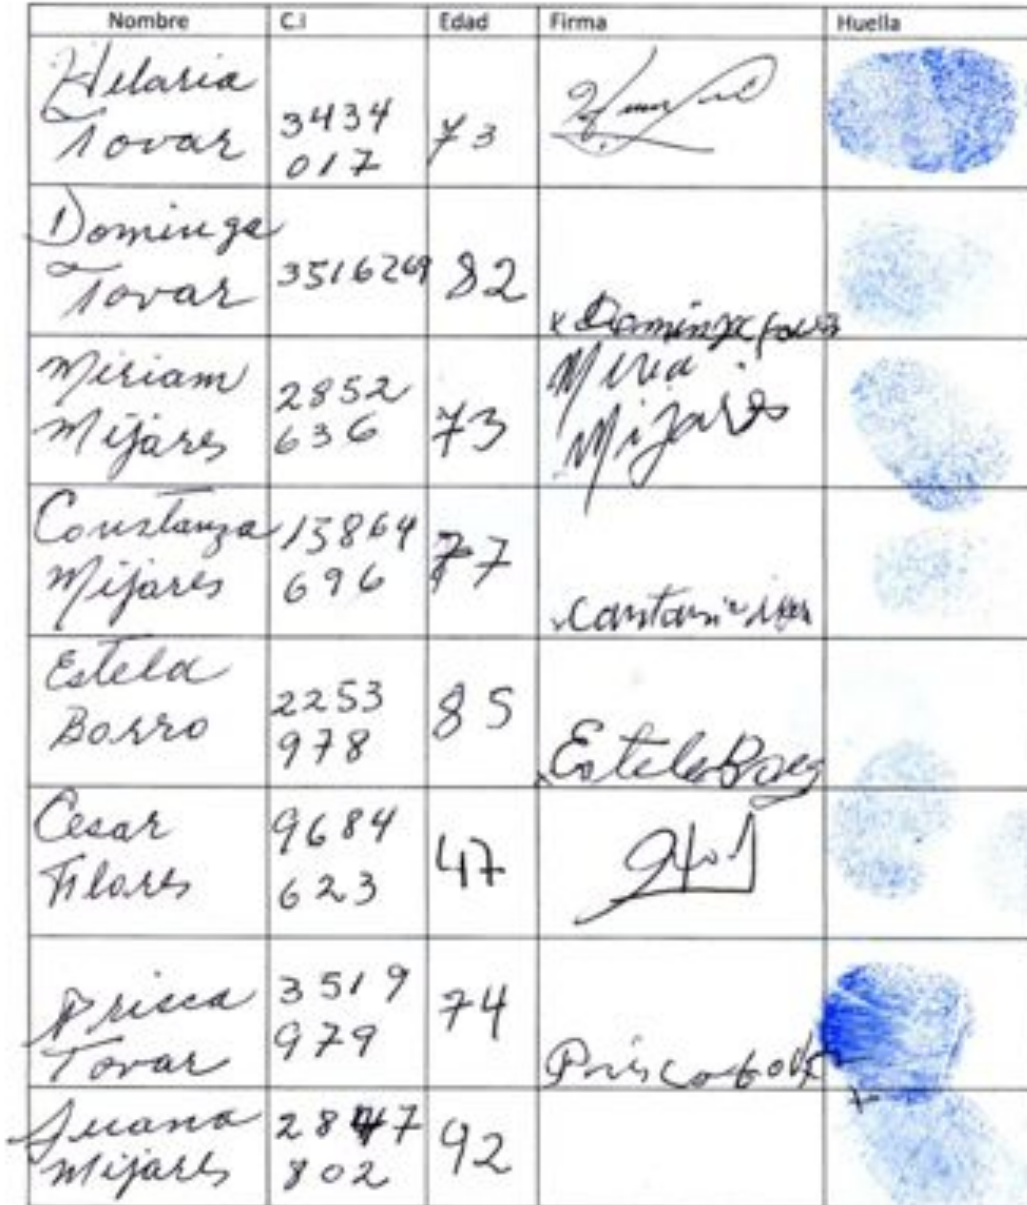 Nombre C.I Edad Firma Huella
Hilaria
Tovar 3434
017 73
Dominga
Tovar 3516269 82
x Dominga tovar
Miriam
Mijares 2852
636 73 Miria
Mijares
Constanza
Mijares 15864
696 77
Estela
Borro 2253
978 85
Estela
Cesar
Flores 9684
623 47
Prisca
Tovar 3519
979 74
Prisca tovar
Juana
Mijares 2847
802 92